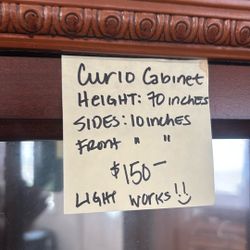 Curio Cabinet
HEIGHT: 70 inches
SIDES: 10 inches
FRONT " "
$150-
LIGHT WORKS!!